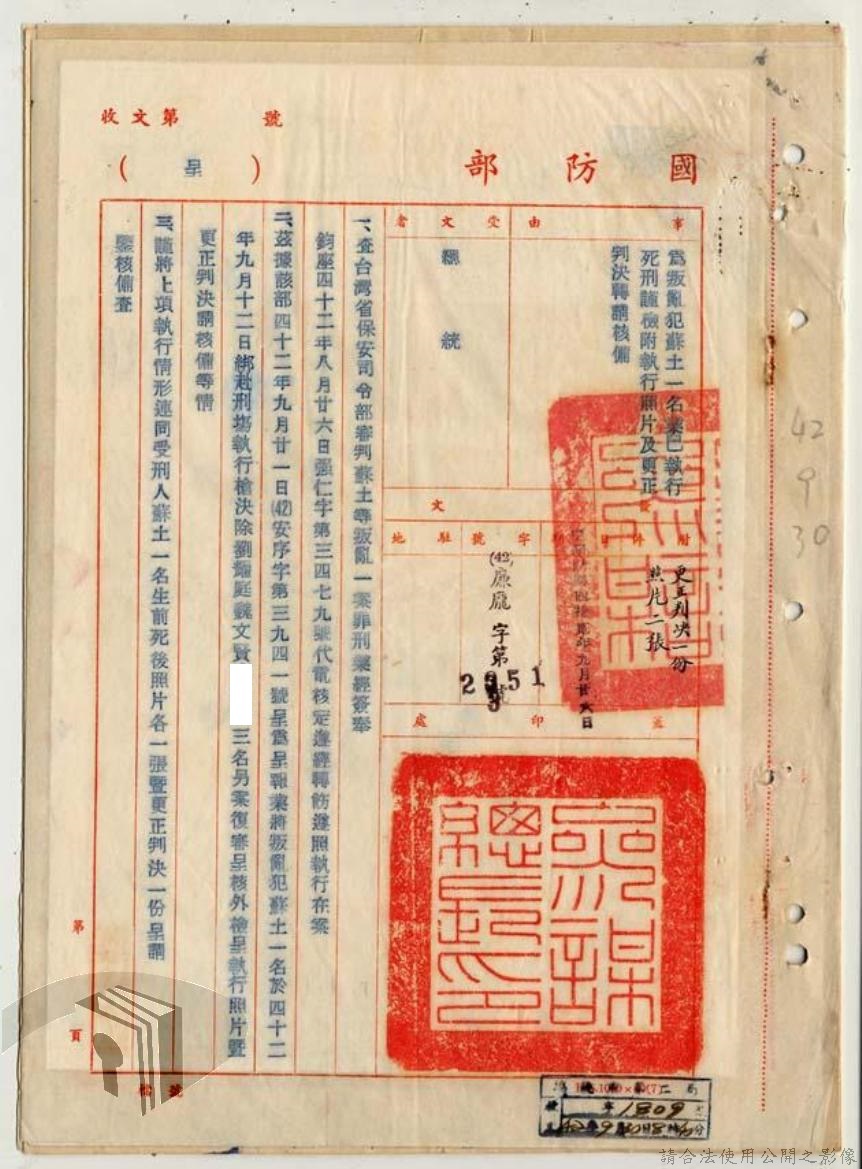 收文第　　號
國防部
（呈）
事由
為叛亂犯蘇土一名業已執行
死刑謹檢附執行照片及更正
判決轉請核備
受文者
總統
附件
更正判決一份
照片二張
日期
九月廿六日
字號
(42)廉龐字第
2951
號
駐地
蓋印處
一、查台灣省保安司令部審判蘇土等叛亂一案罪刑業經簽奉
鈞座四十二年八月廿六日强仁字第三四七九號代電核定遵經轉飭遵照執行在案
二、茲據該部四十二年九月廿一日(42)安序字第三九四一號呈為呈報業將叛亂犯蘇土一名於四十二
年九月十二日綁赴刑場執行槍決除劉耀庭魏文賢
三名另案復審呈核外檢呈執行照片暨
更正判決請核備等情
三、謹將上項執行情形連同受刑人蘇土一名生前死後照片各一張暨更正判決一份呈請
鑒核備查
參謀總長印
42
9
30
第　頁
檔號
1809
請合法使用公開之影像